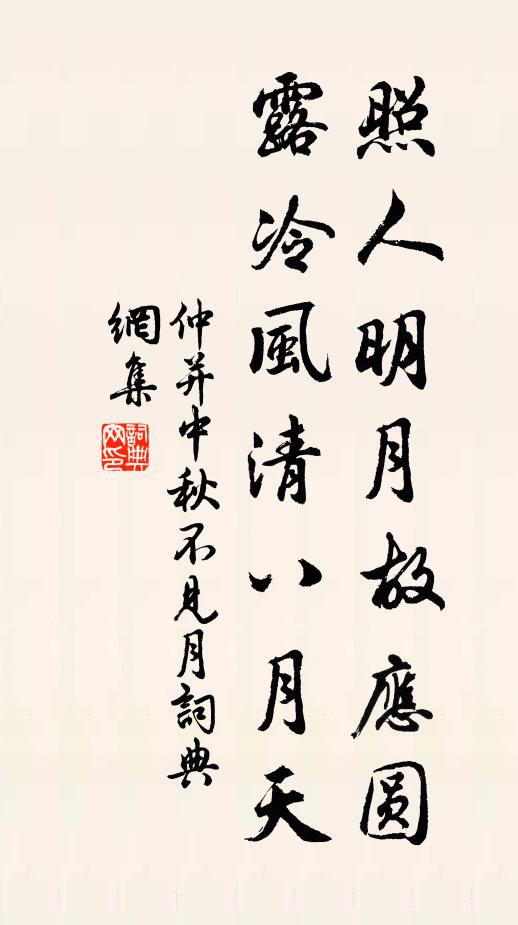 照人明月故應圓
露冷風清八月天
仲并中秋不見月詞典
網集
詞典
网印